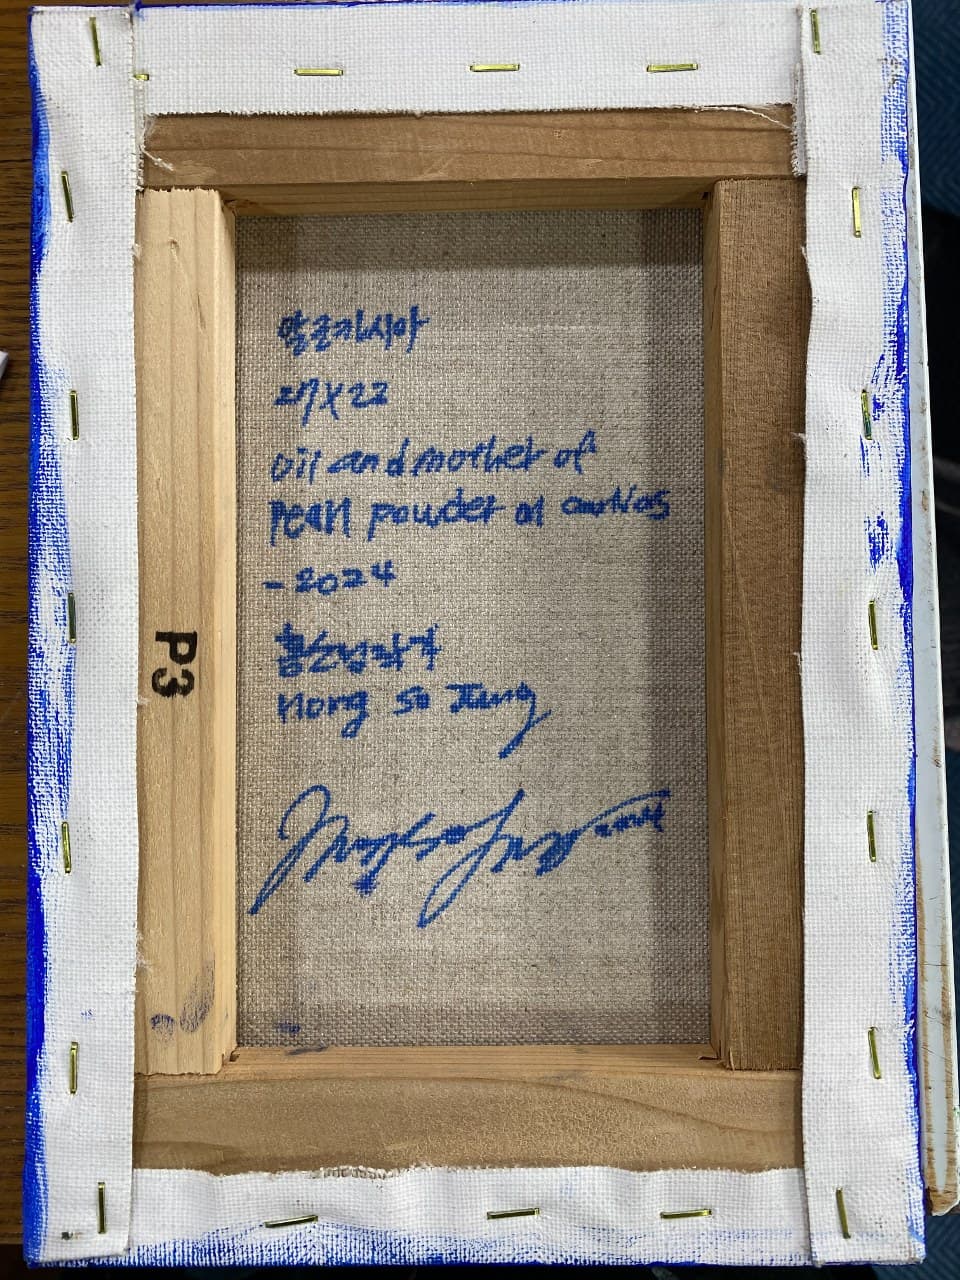 27X22
oil and mother of
Pearl powder on canvas
- 2024
Hong so Jung
P3